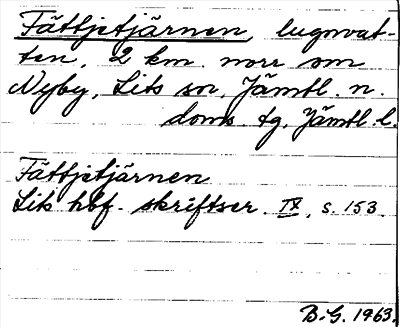 Fättjetjärnen, lugnvat-
ten, 2 km norr om
Nyby, Lits sn, Jämtl. n.
doms. tg, Jämtl. l.
Fättjetjärnen
Lits hbf. skriftser. IX, s. 153
B.G. 1963.